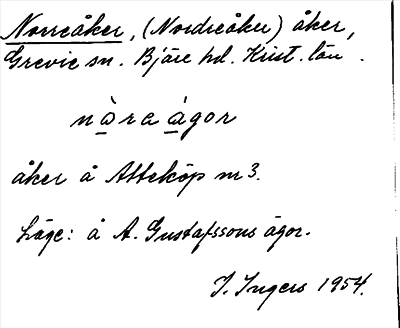 Norreåker, (Nordreåker) åker,
Grevie sn. Bjäre hd. Krist. län.
nò̱ra á̱gor
åker å Atteköp nr 3.
Läge: å A. Gustafssons ägor.
I. Ingers 1954.